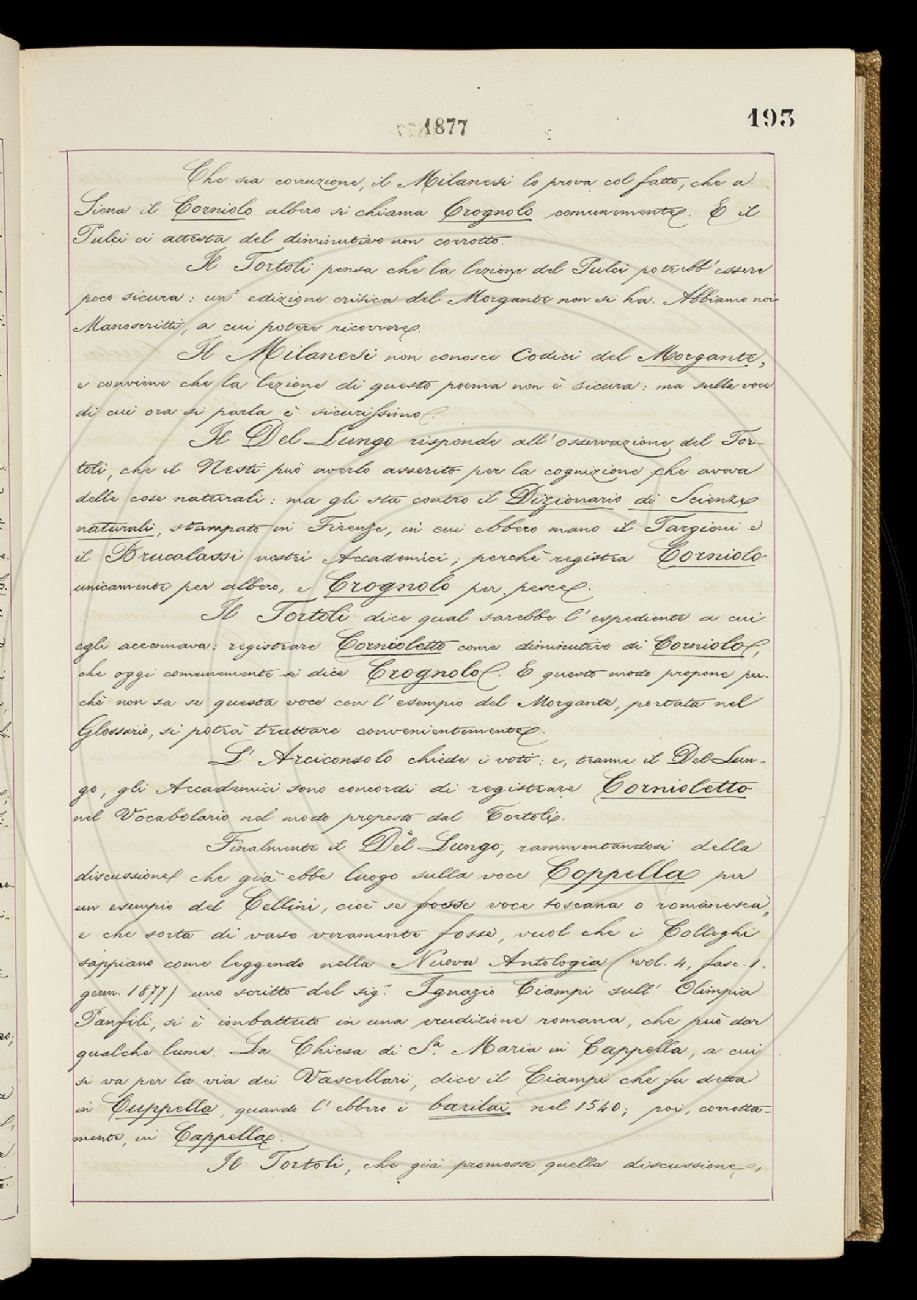 1877
195
Che sia corruzione, il Milanesi lo prova col fatto, che a
Siena il Corniolo albero si chiama Crognolo comunemente. E il
Pulci ci attesta del diminutivo non corrotto.
Il Tortoli pensa che la lezione del Pulci potrebb'essere
poco sicura: un' edizione critica del Morgante non si ha. Abbiamo noi
Manoscritti, a cui potere ricorrere.
Il Milanesi non conosce Codici del Morgante,
e conviene che la lezione di questo poema non è sicura: ma sulla voce
di cui ora si parla è sicurissimo.
Il Del Lungo risponde all'osservazione del Tor-
toli, che il Nesti può averlo asserito per la cognizione che aveva
delle cose natturali: ma gli sta contro il Dizionario di Scienze
naturali, stampato in Firenze, in cui ebbero mano il Targioni e
il Brucalassi nostri Accademici; perchè registra Corniolo
unicamente per albero, e Crognolo per pesce.
Il Tortoli dice qual sarebbe l'espediente a cui
egli accennava: registrare Cornioletto come diminutivo di Corniolo,
che oggi comunemente si dice Crognolo. E questo modo propone per-
chè non sa se questa voce con l'esempio del Morgante, portata nel
Glossario, si potrà trattare convenientemente.
L'Arciconsolo chiede i voti: e, tranne il Del Lun-
go, gli Accademici sono concordi di registrare Cornioletto
nel Vocabolario nel modo proposto dal Tortoli.
Finalmente il Del Lungo, rammentandosi della
discussione che già ebbe luogo sulla voce Coppella per
un esempio del Cellini, cioè se fosse voce toscana o romanesca,
e che sorta di vaso veramente fosse, vuol che i Colleghi
sappiano come leggendo nella Nuova Antologia (vol. 4, fasc. 1.
genn. 1877) uno scritto del sig.r Ignazio Ciampi sull' Olimpia
Panfili, si è imbattuto in una erudizione romana, che può dar
qualche lume. La Chiesa di S.a Maria in Cappella, a cui
si va per la via dei Vascellari, dice il Ciampi che fu detta
in Cuppella, quando l'ebbero i barilai nel 1540; poi, corrotta-
mente, in Cappella.
Il Tortoli, che già promosse quella discussione,